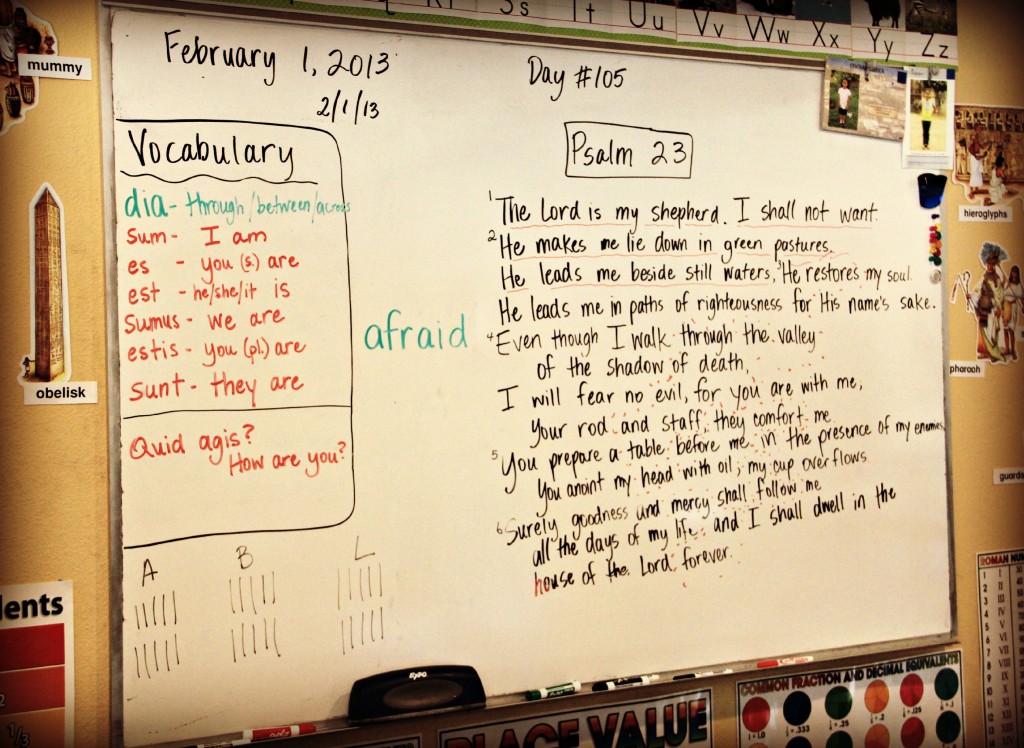 Ss Tt Uu Vv Ww Xx Yy Zz
mummy
obelisk
hieroglyphs
pharaoh
February 1, 2013
2/1/13
Day #105
Vocabulary
dia- through/between/across
sum- I am
es - you (s.) are
est - he/she/it is
sumus - we are
estis - you (pl.) are
sunt - they are
Quid agis?
How are you?
A B L
afraid
Psalm 23
1 The Lord is my shepherd. I shall not want.
2 He makes me lie down in green pastures.
He leads me beside still waters, 3 He restores my soul.
He leads me in paths of righteousness for His name's sake.
4 Even though I walk through the valley
of the shadow of death,
I will fear no evil, for you are with me,
your rod and staff, they comfort me
5 You prepare a table before me in the presence of my enemies
You anoint my head with oil; my cup overflows
6 Surely goodness and mercy shall follow me
all the days of my life and I shall dwell in the
house of the Lord forever.
EXPO
PLACE VALUE
COMMON FRACTION AND DECIMAL EQUIVALENTS
1/3